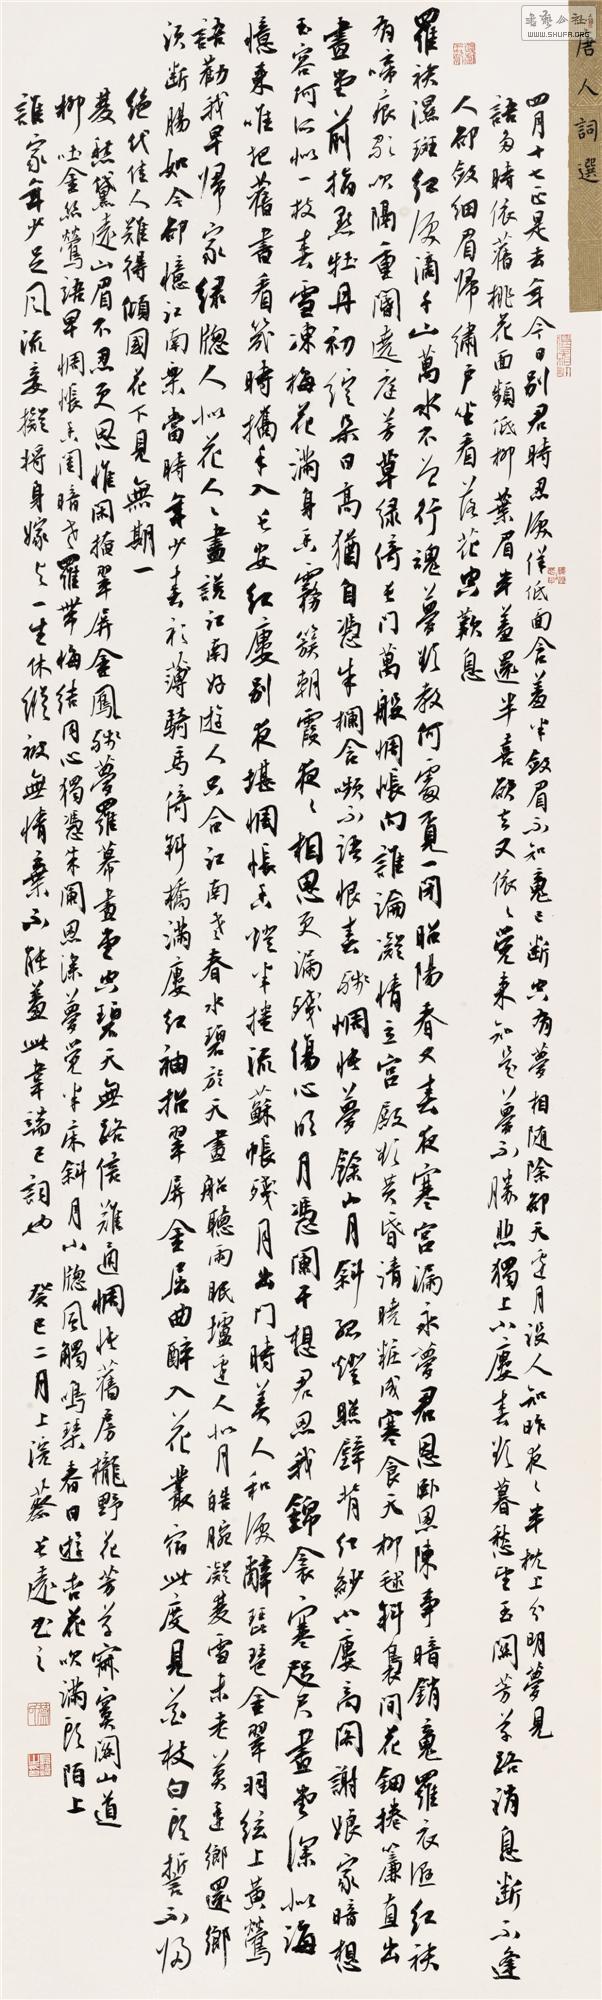 书艺公社
WWW.SHUFA.ORG
唐人詞選
四月十七正是去年今日別君時忍淚佯低面含羞半斂眉不知魂已斷空有夢相隨除卻天邊月沒人知昨夜夜半枕上分明夢見
語多時依舊桃花面頻低柳葉眉半羞還半喜欲去又依依覺來知是夢不勝悲獨上小樓春欲暮愁望玉關芳草路消息斷不逢
人卻斂細眉歸繡戶坐看落花空歎息
羅袂濕斑紅淚滴千山萬水不曾行魂夢欲教何處覓一閉昭陽春又春夜寒宮漏永夢君恩臥思陳事暗銷魂羅衣濕紅袂
有啼痕歌吹隔重閽遶庭芳草綠倚長門萬般惆悵向誰論凝情立宮殿欲黃昏清曉粧成寒食天柳毬斜裊間花鈿捲簾直出
畫堂前指點牡丹初綻朵日高猶自憑朱欄含嚬不語恨春殘惆悵夢餘山月斜孤燈照壁背紅紗小樓高閣謝娘家暗想
玉容何所似一枝春雪凍梅花滿身香霧簇朝霞夜夜相思更漏殘傷心明月憑闌干想君思我錦衾寒咫尺畫堂深似海
憶來唯把舊書看幾時攜手入長安紅樓別夜堪惆悵香燈半捲流蘇帳殘月出門時美人和淚辭琵琶金翠羽絃上黃鶯
語勸我早歸家綠窗人似花人人盡說江南好遊人只合江南老春水碧於天畫船聽雨眠壚邊人似月皓腕凝雙雪未老莫還鄉還鄉
須斷腸如今卻憶江南樂當時年少春衫薄騎馬倚斜橋滿樓紅袖招翠屏金屈曲醉入花叢宿此度見花枝白頭誓不歸
絕代佳人難得傾國花下見無期一
雙愁黛遠山眉不忍更思惟閑掩翠屏金鳳殘夢羅幕畫堂空碧天無路信難通惆悵舊房櫳野花芳草寂寞關山道
柳吐金絲鶯語早惆悵香閨暗老羅帶悔結同心獨憑朱闌思深夢覺半床斜月小窗風觸鳴琴春日遊杏花吹滿頭陌上
誰家年少足風流妾擬將身嫁與一生休縱被無情棄不能羞此韋端己詞也 癸巳二月上浣蔡長遠書之